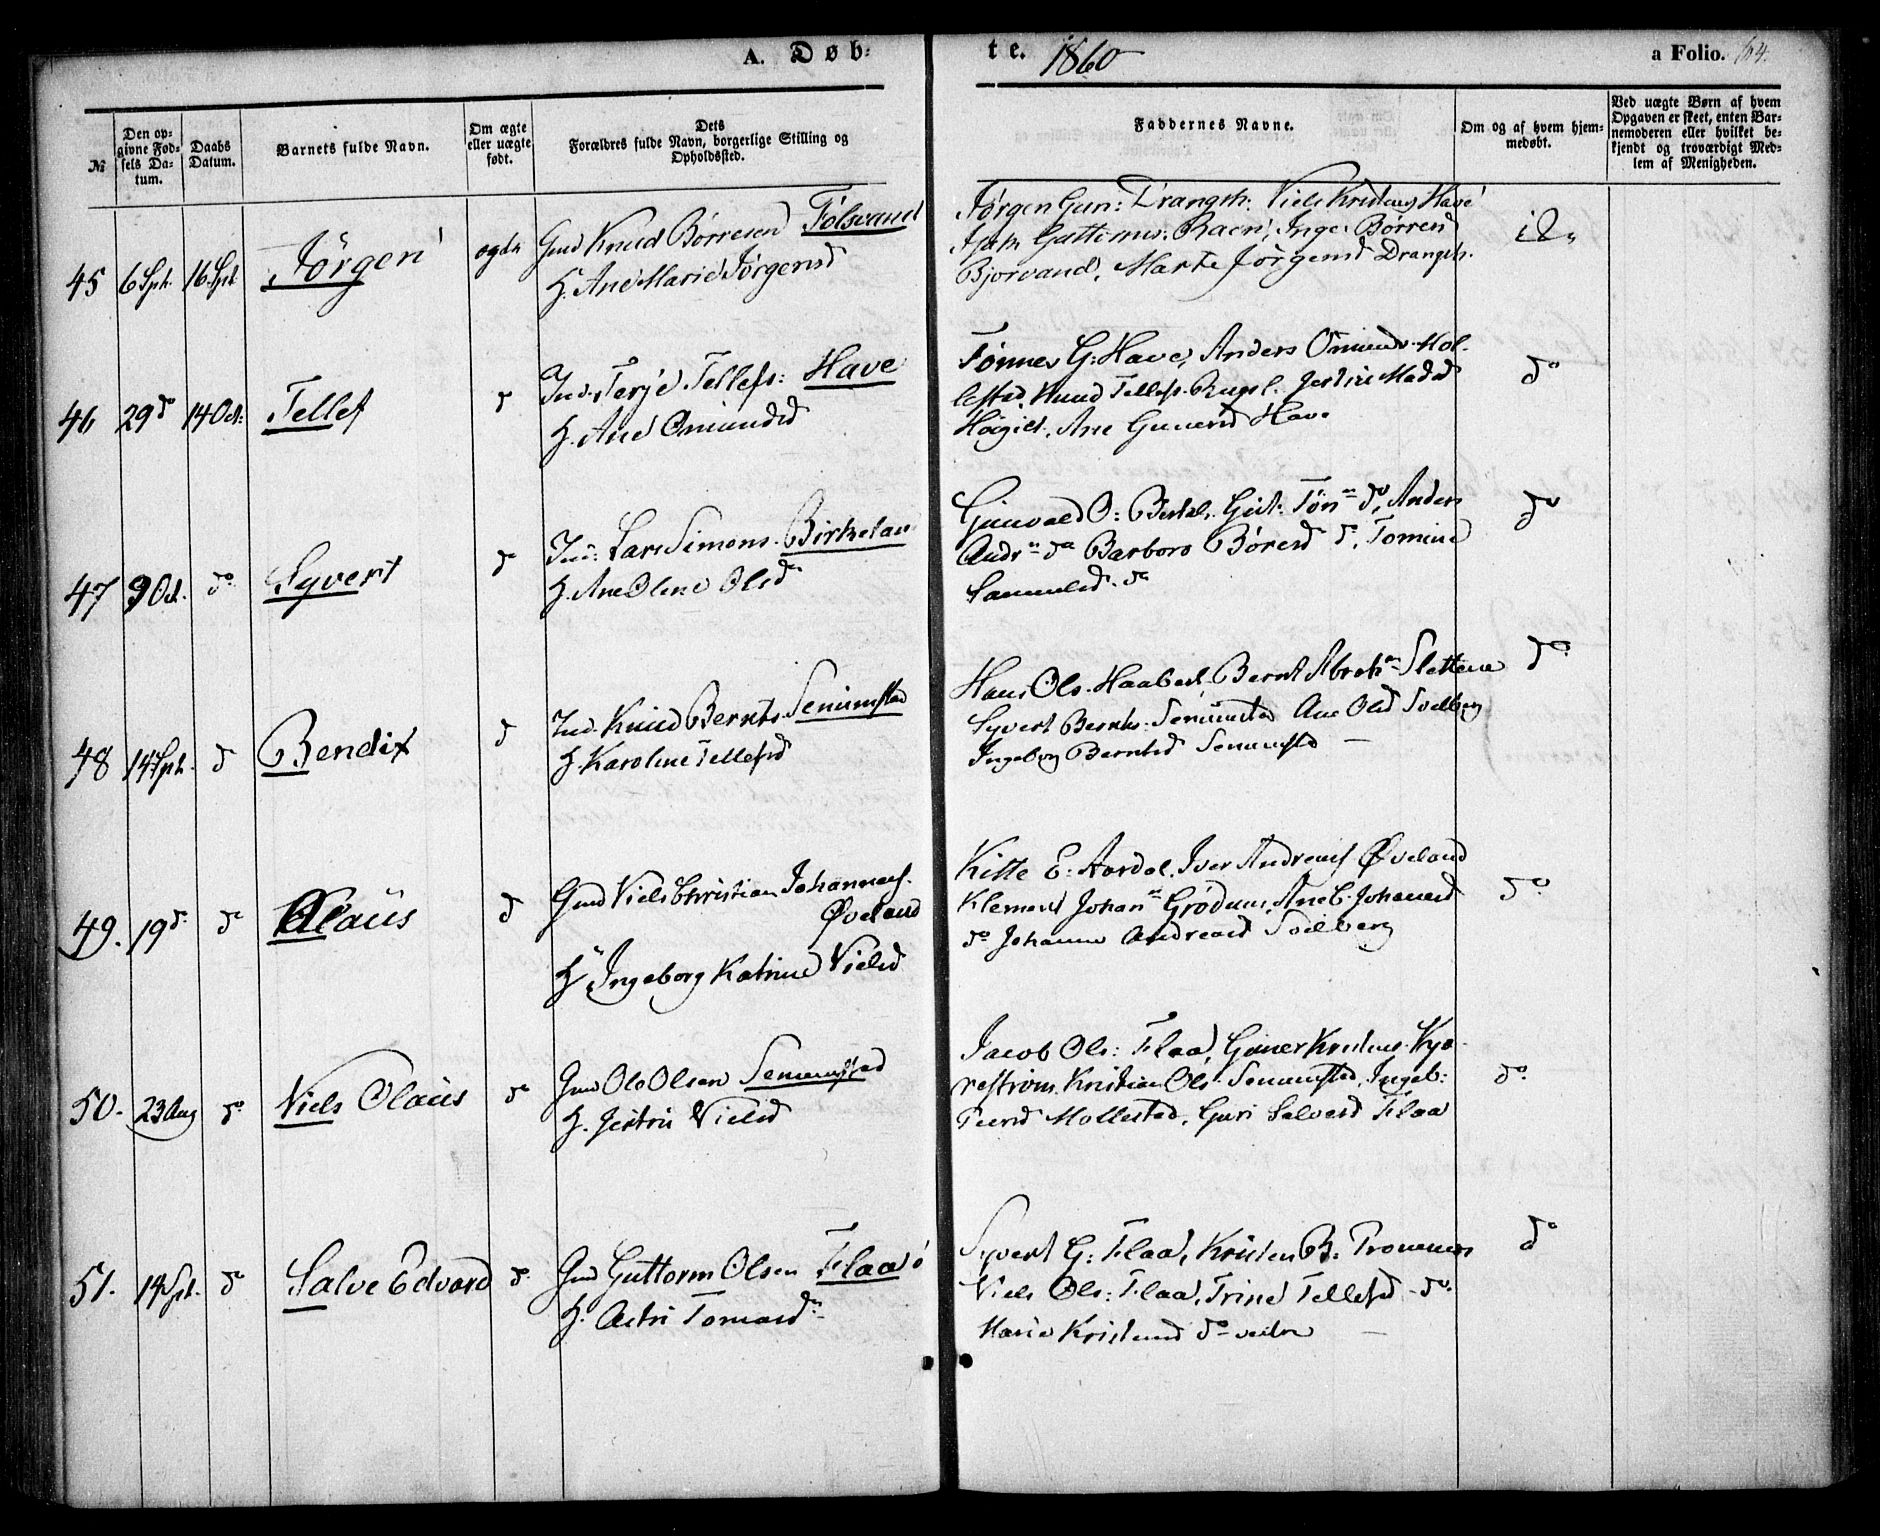 A. Døb-
te. 1860
a Folio. 64.
№
Den op-
givne Fød-
sels Da-
tum.
Daabs
Datum.
Barnets fulde Navn.
Om ægte
eller uægte
født.
Dets
Forældres fulde Navn, borgerlige Stilling og
Opholdssted.
Faddernes Navne.
Om og af hvem hjem-
medøbt.
Ved uægte Børn af hvem
Opgaven er skeet, enten Bar-
nemoderen eller hvilket be-
kjendt og troværdigt Med-
lem af Menigheden.
45 6 Spt. 16 Spt Jörgen
Gmd Knud Börresen Fölsvand
H. Ane Marie Jörgensd
Jørgen Gun: Drangsh. Niels Kristens Have
Raen, Inge Börresd
Bjorvand, Marte Jörgensd Drangsh.
46 29 do 14 Oct: Tellef do
Ind. Terje Tellefs: Have
H. Ane Omundsd
Tönnes G. Have, Anders Omunds Mol-
lestad, Knud Tellefs
Ane Gunersd Have
do
47 9 Oct. do Syvert do
Ind: Lars Simons. Birkelan
H. Ane Olene Olsd
Gunvald O: Birkel. do, Anders
Andrn do Barboro Börresd do, Tomine
Samuelsd. do
do
48 14 Spt. do Bendix do
Ind. Knud Bernts. Senumstad
H. Karoline Tellefsd
Hans Ols. Haabest. Bernt Abrahn Slettene
Syvert Bernts. Senumstad Ane Olsd Soelberg
Ingeborg Berntsd Senumstd —
do
49. 19 do do Olaüs do
Gmd Niels Christian Johannes.
Öveland
H. Ingeborg Katrine Nielsd
Kitte E. Aardal, Iver Andreas Öveland
Klemend Johann Grödum, Ane C. Johannesd
do Johanne Andreasd Soelberg
do
50. 23 Aug do Niels Olaüs do
Gmd Ole Olsen Senumstad
H. Jertrü Nielsd
Jacob Ols: Flaa, Guner Kristens. Kyo-
restrom. Kristian Ols. Senumstad, Ingeb:
Teersd Mollestad, Guri Salvesd Flaa
do
51. 14 Spt. do Salve Edvard do
Gmd Guttorm Olsen Flaa
H. Astri Tomasd
Syvert G: Flaa, Kristen B. Trommens
Niels Ols: Flaa, Trine Tellefsd do.
Marie Kristensd do —
do